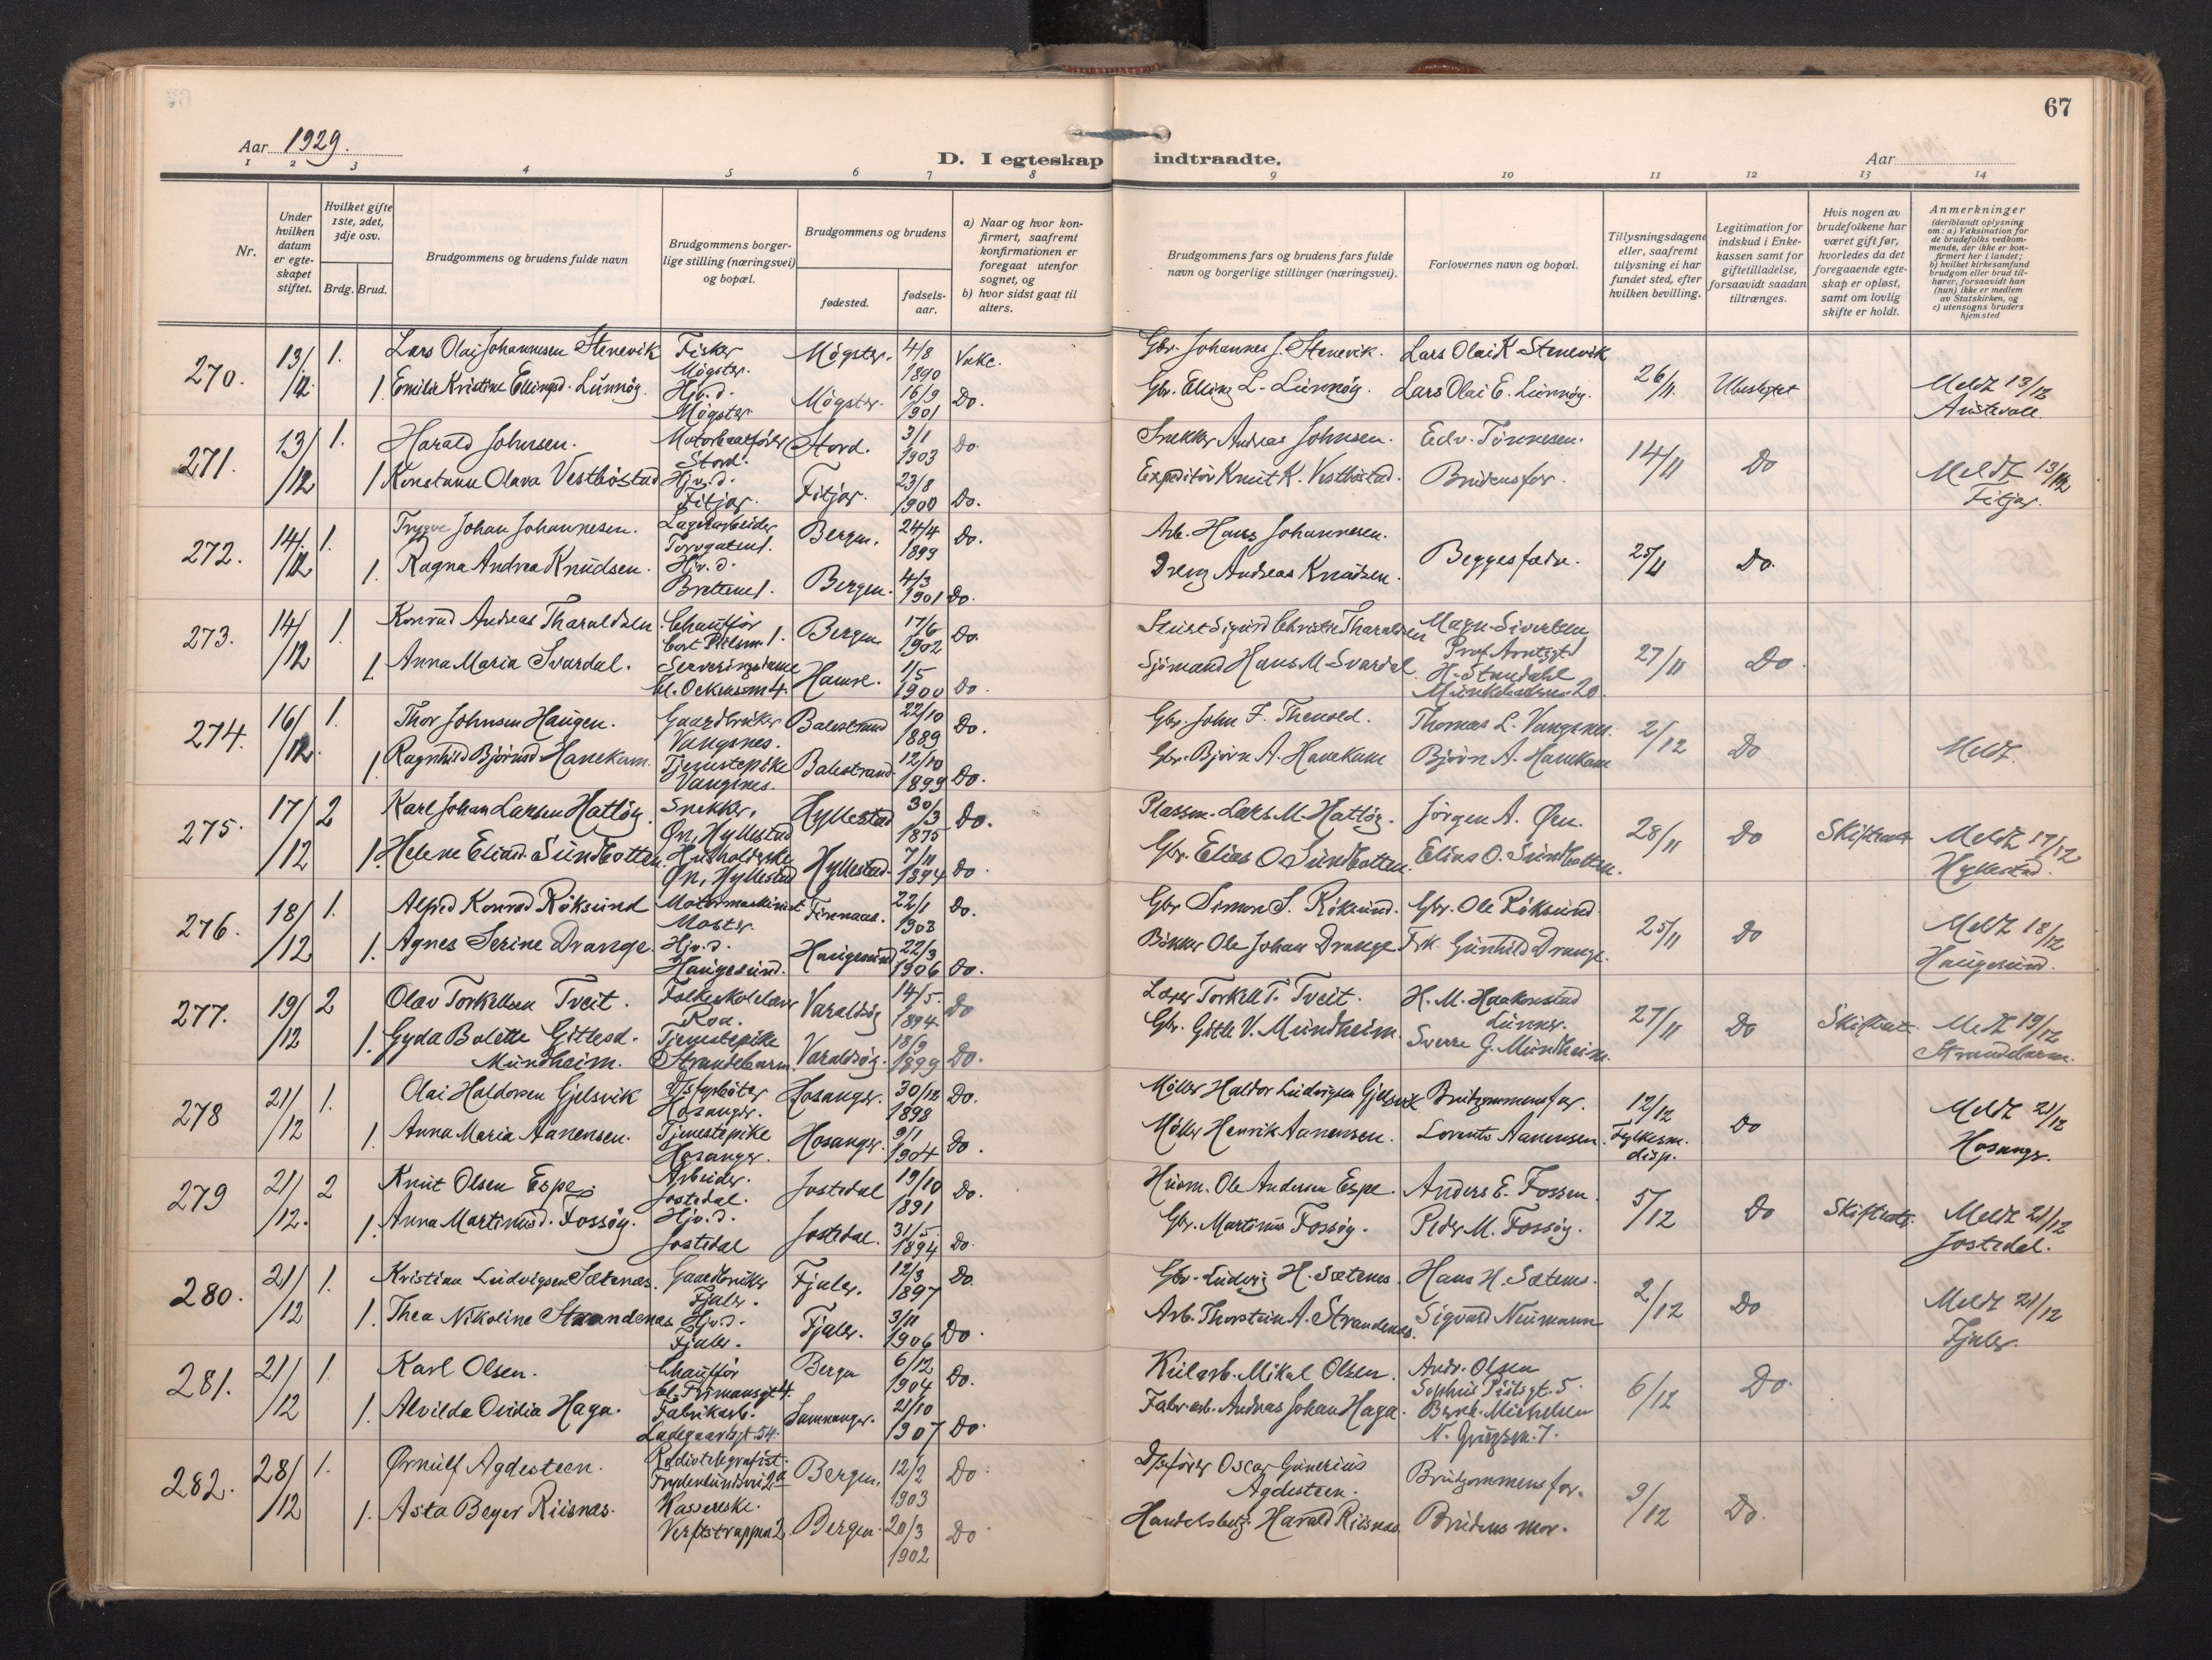 67
Aar 1929.
D. I egteskap indtraadte.
Aar
1 2 3 4 5 6 7 8 9 10 11 12 13 14
Nr.
Under hvilken datum er egteskapet stiftet.
Hvilket gifte 1ste, 2det, 3dje osv.
Brdg. Brud.
Brudgommens og brudens fulde navn
Brudgommens borgerlige stilling (næringsvei) og bopæl.
Brudgommens og brudens
fødested.
fødselsaar.
a) Naar og hvor konfirmert, saafremt konfirmationen er foregaat utenfor sognet, og
b) hvor sidst gaat til alters.
Brudgommens fars og brudens fars fulde navn og borgerlige stillinger (næringsvei).
Forlovernes navn og bopæl.
Tillysningsdagene eller, saafremt tillysning ei har fundet sted, efter hvilken bevilling.
Legitimation for indskud i Enkekassen samt for giftetilladelse, forsaavidt saadan tiltrænges.
Hvis nogen av brudefolkene har været gift før, hvorledes da det foregaaende egteskap er opløst, samt om lovlig skifte er holdt.
Anmerkninger
(deriblandt oplysning om: a) Vaksination for de brudefolks vedkommende, der ikke er konfirmert her i landet; b) hvilket kirkesamfund brudgom eller brud tilhører, forsaavidt han (hun) ikke er medlem av Statskirken, og c) utensogns bruders hjemsted
270. 13/12 1. Lars Olai Johannesen Stenevik Fisker Møgster. Møgster. 4/8 1890 Gbr. Johannes J. Stenevik. Lars Olai K Stenevik
1 Emilie Kristine Ellingsd. Lünnøy. Hjv.d. Møgster Møgster. 16/9 1901 Do. Gbr. Elling L. Lünnøy. Lars Olai E. Lünnøy. 26/11. Meldt 13/12 Austevoll.
271. 13/12 1. Harald Johnsen. Motorbaatfører Stord. Stord. 3/1 1903 Do. Snekker Andreas Johnsen. Edv. Tønnesen.
1 Konstanse Olava Vestbøstad Hjv.d. Fitjar. Fitjar. 23/8 1900 Do. Expeditør Knut K. Vestbøstad. Brudens far. 14/11 Do Meldt 13/12 Fitjar.
272. 14/12 1. Trygve Johan Johannesen. Lagerarbeider Torvgaten 1. Bergen. 24/4 1899 Do. Arb. Hans Johannesen.
1. Ragna Andrea Knudsen. Hjv.d. Bergen. 4/3 1901 Do. Andreas Knudsen. Begges fædre. 25/11 Do.
273. 14/12 1. Konrad Andreas Tharaldsen. Chauffør Bergen 17/6 1902 Do. Sigurd Christie Tharaldsen Magn. Sivertsen
1 Anna Maria Svardal. Serveringsdame Hamre. 1/5 1900 Do. Sjømand Hans M Svardal. 27/11 Do.
274. 16/12. 1. Thor Johnsen Haugen. Gaardbruker Vangsnes. Balestrand 22/10 1889 Do. Gbr. John F. Thenold. Thomas L. Vangsnes.
1. Ragnhild Bjørnsd Hanekam. Tjenestepike Vangsnes. Balestrand 12/10 1899 Do. Gbr. Bjørn A. Hanekam Bjørn A. Hanekam 2/12 Do Meldt.
275. 17/12 2 Karl Johan Larsen Hatløy. Snekker. Øn, Hyllestad Hyllestad 30/3 1875 Do. Plassm. Lars M. Hatløy. Jørgen A. Øen.
1. Helene Eliasd. Sündbotten. Husholderske Øn, Hyllestad Hyllestad. 7/11 1894 Do. Gbr. Elias O Sündbotten. Elias O. Sündbotten. 28/11 Do Skifteatt. Meldt 17/12 Hyllestad.
276. 18/12 1. Alfred Konrad Røksund Motormaskinist Moster. Finnaas. 22/1 1903 Do. Gbr Simon S. Røksund. Gbr. Ole Røksund.
1. Agnes Serine Drange. Hjv.d. Haugesund. Haugesund 22/3 1906 Do. Bøkker Ole Johan Drange Frk. Gunhild Drange. 25/11 Do Meldt 18/12 Haugesund.
277. 19/12 2 Olav Torkellsen Tveit. Folkeskolelærer Roa. Varaldsøy 14/5. 1894. Do Lærer Torkell T. Tveit. H. M. Haakonstad Lunner.
1. Gyda Bolette Gitlesd. Mundheim. Tjenestepike Strandebarm. Varaldsøy. 18/9 1899 Do. Gbr. Gitle V. Mundheim. Sverre G. Mundheim. 27/11 Do Skifteatt. Meldt 19/12 Strandebarm.
278 21/12 1. Olai Haldorsen Gjelsvik Hosanger. Hosanger. 30/12 1898 Do. Møller Haldor Ludvigsen Gjelsvik Brudgommens far. 12/12
1. Anna Maria Aanensen. Tjenestepike Hosanger. Hosanger. 9/1 1904 Do. Møller Henrik Aanensen. Lorents Aanensen. Fylkesm. disp. Do Meldt 21/12 Hosanger.
279 21/12. 2 Knut Olsen Espe. Arbeider. Jostedal. Jostedal 19/10 1891 Do. Husm. Ole Andersen Espe. Anders E. Fossen.
1. Anna Martinusd. Fossøy. Hjv.d. Jostedal Jostedal. 31/5. 1894 Do. Gbr. Martinus Fossøy. Peder M. Fossøy. 5/12 Do Skifteatt. Meldt 21/12 Jostedal.
280. 21/12 1. Kristian Ludvigsen Sætenes. Gaardbruker Fjaler. Fjaler. 12/3 1897 Do. Gbr. Ludvig H. Sætenes Hans H. Sætenes.
1. Thea Nikoline Strandenæs Hjv.d. Fjaler. Fjaler. 3/11 1906 Do. Arb. Thorstein A. Strandenæs. Sigurd Neumann 2/12 Do Meldt 21/12 Fjaler.
281. 21/12 1. Karl Olsen. Chauffør Bergen 6/12 1904 Do. Kularb. Mikal Olsen. Andr. Olsen
1. Alvilda Ovidia Haga. Fabrikarb. Ladegaardsgt. 54. Samnanger. 21/10 1907 Do. Fabr. arb. Andreas Johan Haga. Bernh. Michelsen 6/12 Do.
282. 28/12 1. Ørnulf Agdesteen. Radiotelegrafist. Bergen. 12/2 1903 Do. Oscar Gunerius Agdesteen. Brudgommens far.
1. Asta Beyer Riisnæs. Kassererske. Verftstrappen 2. Bergen. 20/3 1902 Do Handelsbetj. Harald Riisnæs Brudens mor. 9/12 Do.